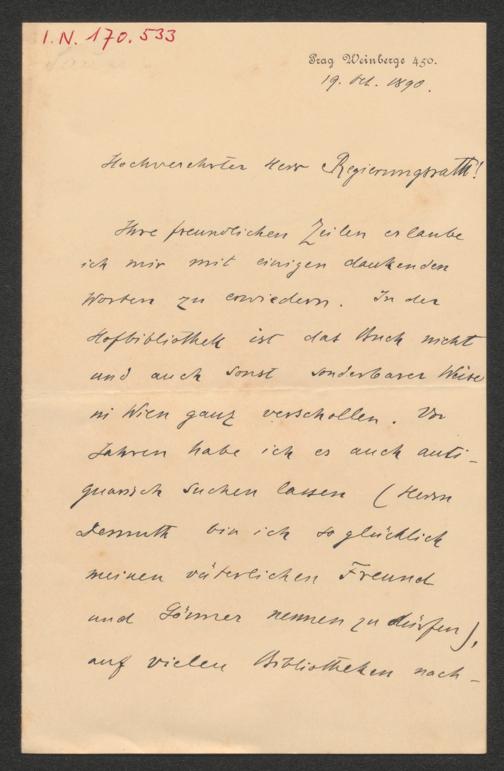 I.N. 170.533
Prag Weinberge 450.
19. Okt. 1890.
Hochverehrter Herr Regierungsrath!
Ihre freundlichen Zeilen erlaube
ich mir mit einigen dankenden
Worten zu erwiedern. In der
Hofbibliothek ist das Buch nicht
und auch sonst sonderbarer Weise
in Wien ganz verschollen. Vor
Jahren habe ich es auch anti-
quarisch suchen lassen (Herrn
bin ich so glücklich
meinen väterlichen Freund
und Gönner nennen zu dürfen),
auf vielen Bibliotheken nach-